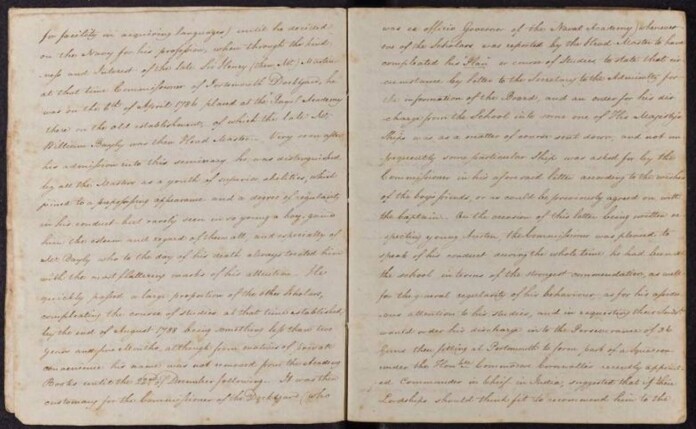 for facility in acquiring languages) until he decided
on the Navy for his profession, when through the kind
ness and Interest of the late Sir Henry (then Mr.) Martin
at that time Commissioner of Portsmouth Dockyard, he
was on the of April 1786 placed at the Royal Academy
there on the old establishment, of which the late Mr.
William Bayly was then Head Master. Very soon after
his admission into this seminary, he was distinguished
by all the Masters as a youth of superior abilities, which
joined to a prepossessing appearance and a degree of regularity
in his conduct but rarely seen in so young a boy, gained
him the esteem and regard of them all, and especially of
Mr. Bayly who to the day of his death always treated him
with the most flattering marks of his attention. He
quickly passed a large proportion of the other Scholars,
compleating the course of studies at that time established,
by the end of August 1788 being something less than two
years and five Months, although from motives of private
convenience his name was not removed from the Academy
Books until the 23rd of December following. It was then
customary for the Commissioner of the Dockyard (who
was ex officio Governor of the Naval Academy) whenever
one of the Scholars was reported by the Head Master to have
compleated his Plan or course of Studies to state that cir
cumstance by letter to the Secretary to the Admiralty for
the information of the Board, and an order for his dis
charge from the School into some one of His Majesty's
Ships was as a matter of course sent down, and not un
frequently some particular Ship was asked for by the
Commissioner in his aforesaid letter according to the wishes
of the boy's friends, or as could be previously agreed on with
the captain. On the occasion of this letter being written re
specting young Austen, the Commissioner was pleased to
speak of his conduct during the whole time he had been at
the school in terms of the strongest commendation, as well
for the general regularity of his behaviour, as for his assidu
ous attention to his studies, and in requesting their Lordsps.
would order his discharge into the Perseverance of 36
Guns then fitting at Portsmouth to form part of a Squadron
under the Honble. Commodore Cornwallis recently appoint
ed Commander in Chief in India; suggested that if their
Lordships should think fit to recommend him to the